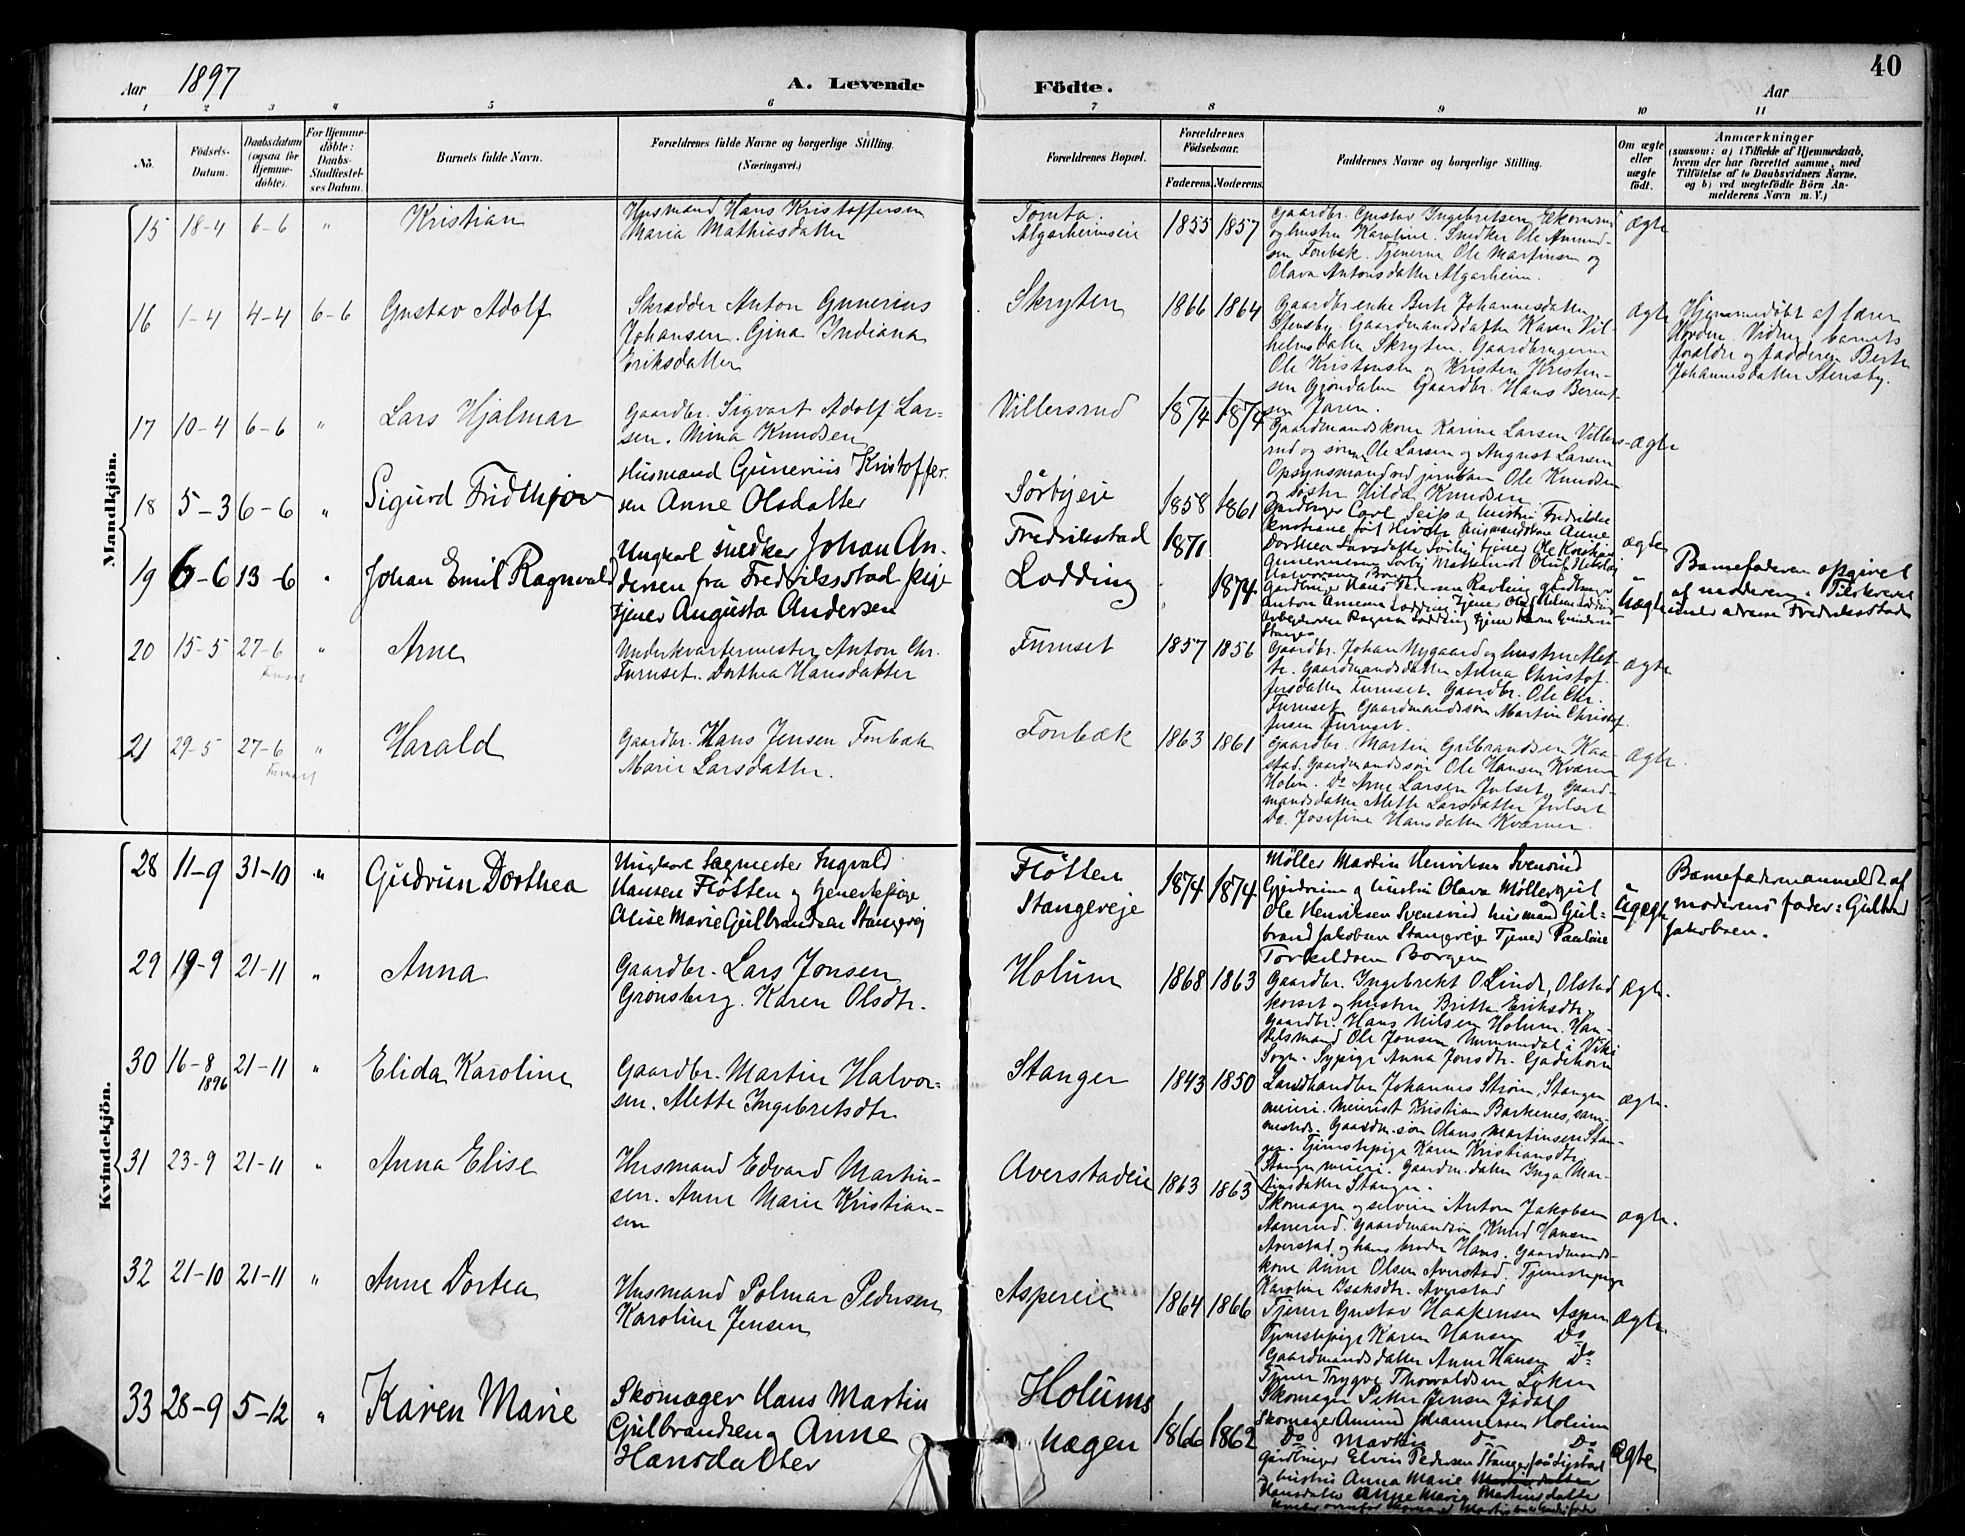 Aar 1897
A. Levende
Födte.
Aar
40
1 2 3 4 5 6 7 8 9 10 11
No.
Födsels-
Datum.
Daabsdatum
(ogsaa for
Hjemme-
döbte).
For Hjemme-
döbte:
Daabs-
Stadfæstel-
ses Datum.
Barnets fulde Navn.
Forældrenes fulde Navne og borgerlige Stilling.
(Næringsvei.)
Forældrenes Bopæl.
Forældrenes
Födselsaar.
Faderens. Moderens.
Faddernes Navne og borgerlige Stilling.
Om ægte
eller
uægte
födt.
Anmærkninger
(saasom: a) i Tilfælde af Hjemmedaab,
hvem der har forrettet samme, med
Tilföielse af to Daabsvidners Navne,
og b) ved uægtefödte Börn An-
melderens Navn m. V.)
Mandkjön.
15 18-4 6-6 " Kristian
Husmand Hans Kristoffersen
Maria Mathiasdatter
Tomta
Algarheimseie
1855 1857
Gaardbr. Gustav Ingebretsen Ekornrud
og hustru Karoline. Snedker Ole Amund-
sen Fonbæk. Tjenerne Ole Martinsen og
Olava Antonsdatter Algarheim.
ægte
16 1-4 4-4 6-6 Gustav Adolf
Skrædder Anton Gunerius
Johansen. Gina Indiana
Eriksdatter
Skryten
1866 1864
Gaardbr.enke Berte Johannesdatter
Stensby. Gaardmandsdatter Karen Vil-
helmsdatter Skryten. Gaardbrugerne
Ole Kristensen og Kristen Kristen-
sen Gjöndalen Gaardbr. Hans Bernt-
sen Jaren.
ægte
Hjemmedøbt af lærer
Hovden. Vidner, barnets
forældre og fadderen Berte
Johannesdatter Stensby.
17 10-4 6-6 " Lars Hjalmar
Gaardbr. Sigvart Adolf Lar-
sen. Mina Knudsen
Villersrud
1874 1874
Gaardmandskone Karine Larsen Villers-
rud og sønn Ole Larsen og August Larsen
Opsynsmand ved jernban Ole Knudsen
og søster Hilda Knudsen.
ægte
18 5-3 6-6 " Sigurd Fridthjov
Husmand Gunerius Kristoffer-
sen Anne Olsdatter
Sörbyeie
1858 1861
Gardbruger Carl Seip & hustru Fredrikke
Anne
Dorthea Larsdatter Sörby tjener Ole Kristian
ægte
19 6-6 13-6 " Johan Emil Ragnvald
Ungkarl snedker Johan An-
dersen fra Fredriksstad pige
tjener Augusta Andersen
Fredrikstad
Lodding
1871
1874
Gardbruger Hans
Anton Lodding Tjener
Arbeideren Ragna Lodding tjener
Stange
uægte
Barnefaderen opgivet
af moderen. Tilskrevet
under adresse Fredriksstad
20 15-5 27-6 " Arne
Furuset
Underkvartermester Anton Chr.
Furuset. Dorthea Hansdatter
Furuset
1857 1856
Gaardbr. Johan Nygaard og hustru Alet-
te. Gaardmandsdatter Anna Christof-
fersdatter Furuset. Gaardbr. Ole Chr.
Furuset Gaardmandssøn Martin Christof-
fersen Furuset.
ægte
21 29-5 27-6 " Harald
Furuset
Gaardbr. Hans Jensen Fonbæk
Marie Larsdatter.
Fonbæk
1863 1861
Gaardbr. Martin Gulbrandsen Kaa-
stad. Gaardmandssøn Ole Hansen Kværn
Holm. Do Arne Larsen Julset, Gaard-
mandsdatter Mette Larsdatter Julset
Do. Josefine Hansdatter Kværner.
ægte.
Kvindekjön.
28 11-9 31-10 " Gudrun Dorthea
Ungkarl Sagmester Ingvald
Hansen Flötten og tjenestepige
Alise Marie Gulbrandsen Stangevej
Flötten
Stangeveje
1874 1874
Möller Martin Henriksen Svensrud
Gjerdrum og hustru Olava Möllerguil
Ole Henriksen Svensrud husmand Gul-
brand Jakobsen Stangeveje Tjener Pauline
Torkildsen Borgen
uægte
Barnefaderen anmeldt af
moderens fader: Gulbrand
Jakobsen.
29 19-9 21-11 " Anna
Gaardbr. Lars Jonsen
Grønsberg. Karen Olsdtr.
Holum
1868 1863
Gaardbr. Ingebrekt O. Linde, Olstad
korset og hustru Britta Eriksdtr,
Gaardbr. Hans Nilsen Holum. Han-
delsmand Ole Jonsen Nummedal i Vik i
Sogn. Sypige Anna Jonsdtr. Gadehorn
ægte.
30 16-8 1896 21-11 " Elida Karoline
Gaardbr. Martin Halvor-
sen. Mette Ingebretsdtr
Stanger
1843 1850
Landhandler Johannes Strøm, Stanger
meieri. Meierist Kristian Barkenes, sam-
mesteds. Gaardm.søn Olaus Martinsen Stan-
ger. Tjenestepige Karen Kristiansdtr
Stanger meieri. Gaardm.datter Inga Mar-
tinsdatter Stanger.
ægte.
31 23-9 21-11 " Anna Elise
Husmand Edvard Martin-
sen. Anne Marie Kristian-
sen
Averstadeie
1863 1863
Skomager og selveier Anton Jakobsen
Aanerud. Gaardmandssøn Knud Hansen
Averstad og hans broder Hans. Gaardmands-
kone Anne Olsen Averstad. Tjenestepige
Karoline Isaksdtr. Averstad
ægte.
32 21-10 21-11 " Anne Dortea
Husmand Polmar Pedersen
Karoline Jensen
Aspereie
1864 1866
Tjener Gustav Haakensen Asper
Tjenestepige Karen Hansen Do
Gaardmandsdatter Anne Hansen Do
Tjener Trygve Thorvaldsen Løken
Skomager Peter Jensen Jödal
ægte.
33 28-9 5-12 " Karen Marie
Skomager Hans Martin
Gulbrandsen og Anne
Hansdatter
Holums
hagen
1866 1862
Skomager Amund Johannessen Holum
Do Martin do Do
Gårdbruger Elvin Pedersen Stanger
& hustru Anna Marie
Hansdatter Anne Marie Martinsdatter
ægte